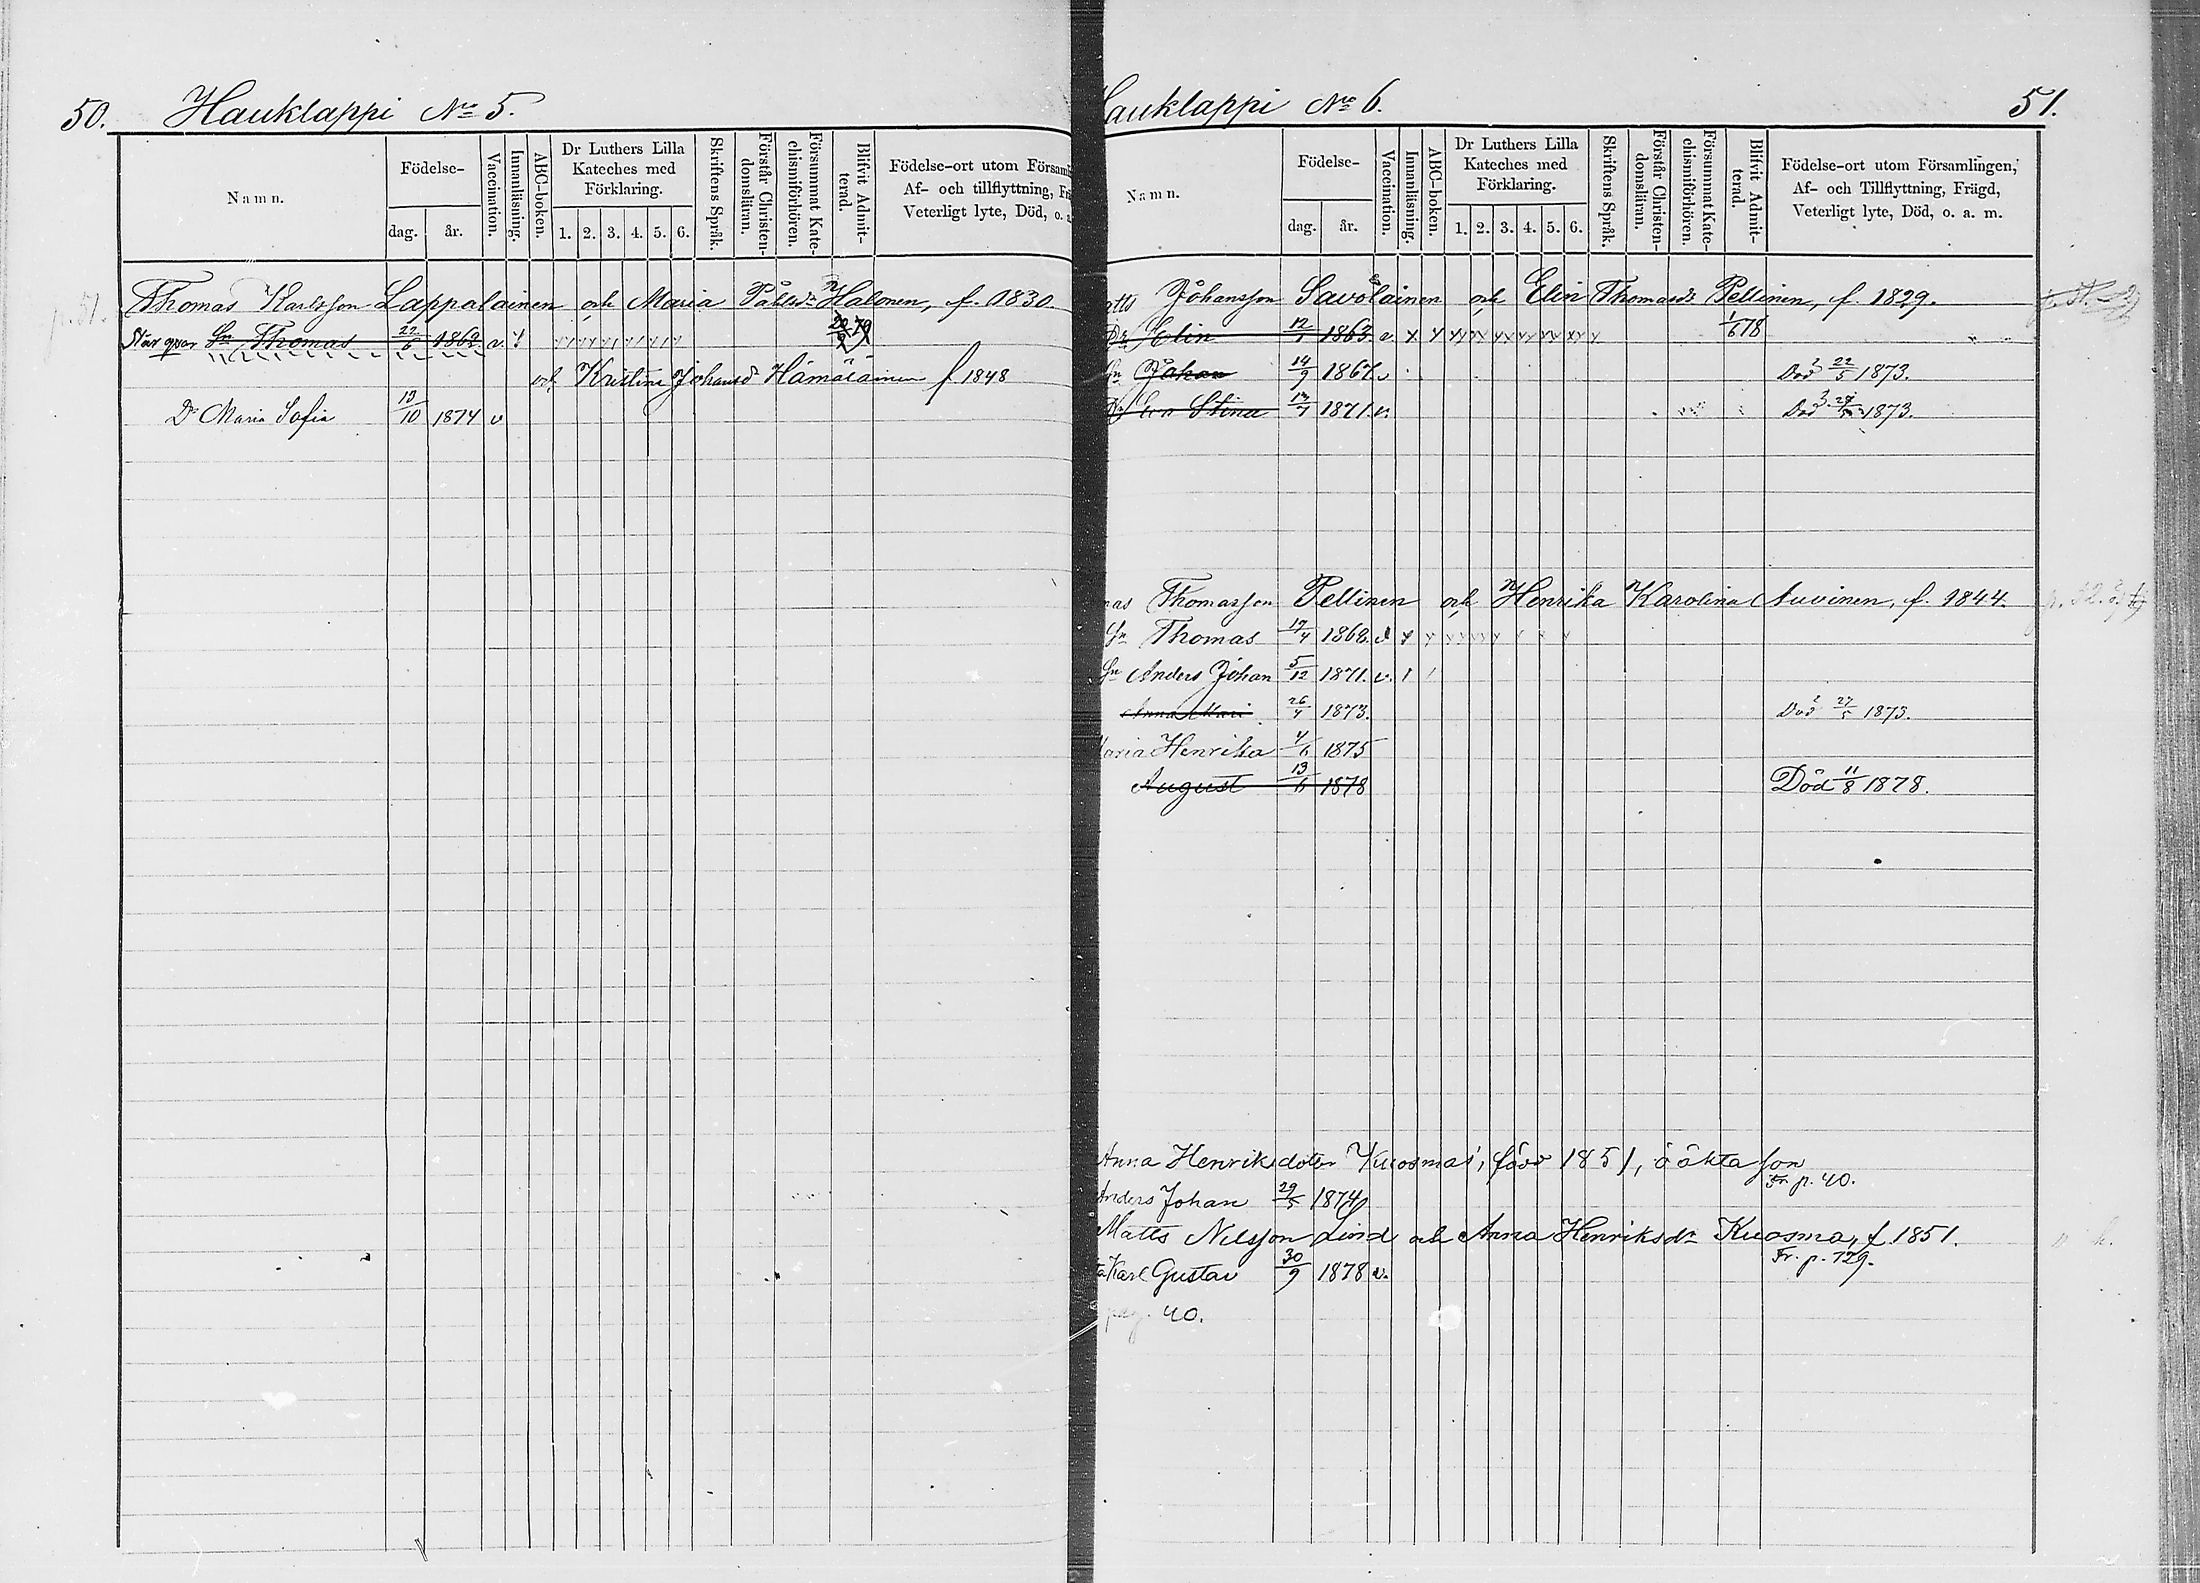 50. Hauklappi No 5.
Namn.
Födelse-
dag. år.
Vaccination.
Innanläsning.
ABC-boken.
Dr Luthers Lilla
Kateches med
Förklaring.
1. 2. 3. 4. 5. 6.
Skriftens Språk.
Förstår Christen-
domsläran.
Försummat Kate-
chismiförhören.
Blifvit Admit-
terad.
Födelse-ort utom Försam
Af- och tillflyttning,
Veterligt lyte, Död, o.
p. 51.
Thomas Karlsson Lappalainen och Maria Påhlsdr Halonen, f. 1830
Står qvar Sn Thomas 22/6 1862 v.
och Kristina Johansdr Hämäläinen f 1848
Dr Maria Sofia 13/10 1874 v
auklappi No 6. 51.
Namn.
Födelse-
dag. år.
Vaccination.
Innanläsning.
ABC-boken.
Dr Luthers Lilla
Kateches med
Förklaring.
1. 2. 3. 4. 5. 6.
Skriftens Språk.
Förstår Christen-
domsläran.
Försummat Kate-
chismiförhören.
Blifvit Admit-
terad.
Födelse-ort utom Församlingen,
Af- och Tillflyttning, Frägd,
Veterligt lyte, Död, o. a. m.
Johansson Savolainen och Elin Thomasdr Pellinen, f. 1829.
Dr Elin 12/1 1863. v 1/6 78
Sn Johan 14/9 1867 v Död 22/5 1873.
Dr Eva Stina 13/7 1871. v. Död 1873.
mas Thomasson Pellinen och Henrika Karolina Auvinen, f. 1844.
Sn Thomas 17/4 1868. v
Sn Anders Johan 5/12 1871. v.
Anna Mari 26/4 1873. Död 27/5 1873.
Maria Henrika 4/6 1875
August 13/6 1878 Död 11/8 1878.
Anna Henriksdoter Kuosma, född 1851, oäkta son
Fr. p. 40.
Anders Johan 29/5 1874
Matts Nilsson Lind och Anna Henriksdr Kuosma, f. 1851.
Fr. p. 129.
Karl Gustav 30/9 1878 v.
pag. 40.